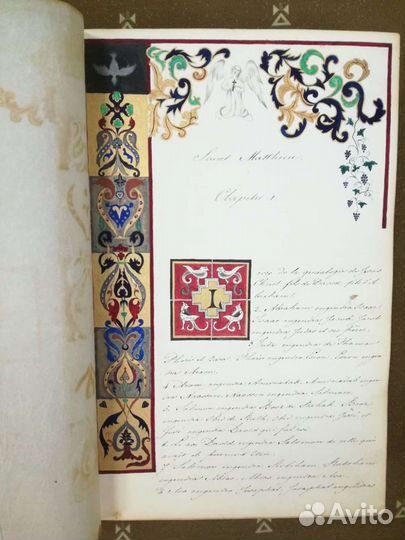 Saint Mathieu
Chapitre 1
I
de la genealogie de Jesus
Christ fils de David fils d'A
braham.
2 Abraham engendra Isaac
Isaac engendra Jacob Jacob
engendra Judas et ses frères
3 Juda engendra de Thamar
Phares et Zara. Phares engendra Esron. Esron engen
dra Aram.
4 Aram engendra Aminadab. Aminadab engen
dra Naasson. Naasson engendra Salmon.
5 Salmon engendra Booz de Rahab. Booz
engendra Obed de Ruth. Obed engendra Jessé et
Jessé engendra David qui fut roi
6 Le roi David engendra Salomon de celle qui
avait été femme d'Urie
7 Salomon engendra Roboham. Roboham
engendra Abias. Abias engendra Asa
8 Asa engendra Josaphat. Josaphat engendra
Avito